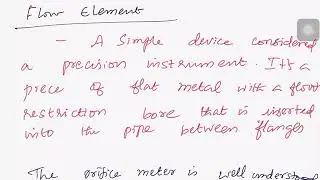 Flow Element
- A Simple device considered
a precision instrument. Its a
piece of flat metal with a flow
restriction bore that is inserted
into the pipe between flanges
The orifice meter is well understood